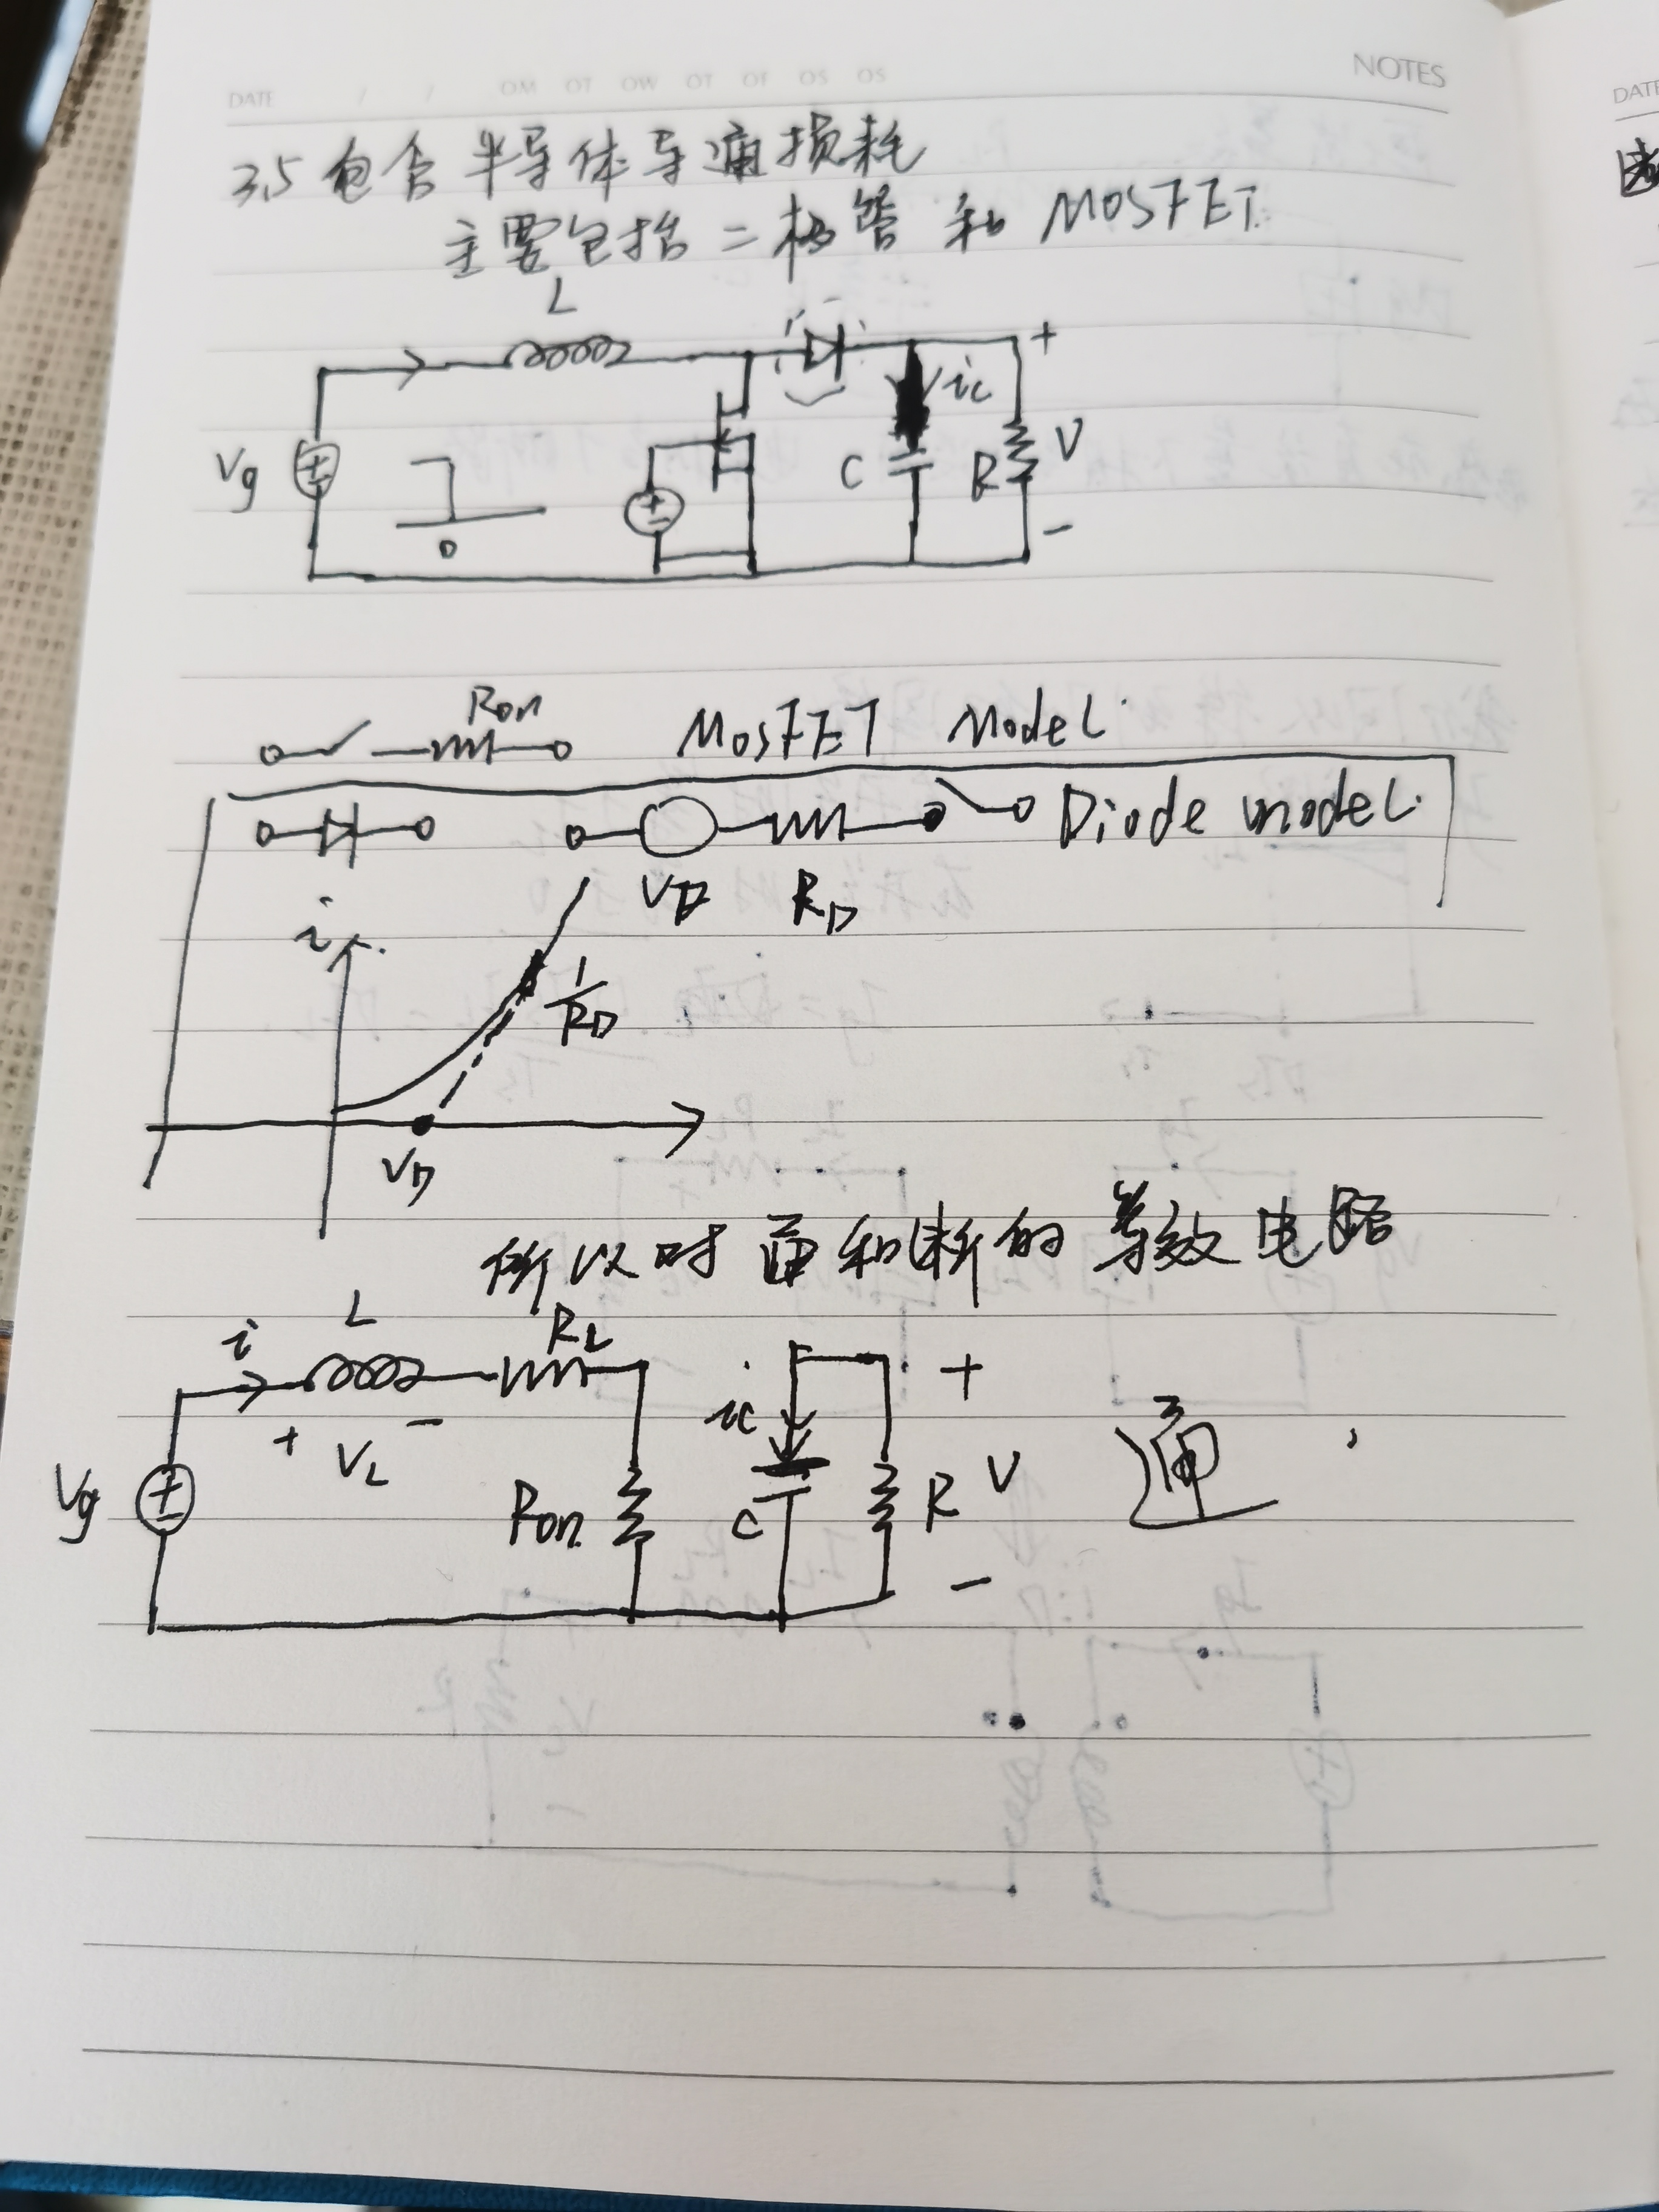 NOTES
DATE / / OM OT OW OT OF OS OS
DATE
3.5 包含半导体导通损耗
主要包括二极管和 MOSFET.
L
+
ic
Vg
C
R
V
D
-
Ron
MOSFET Model.
Diode model.
VD
RD
i
1/RD
VD
所以对通和断的等效电路
i
L
RL
+ VL -
ic
+
Vg
Ron
C
R
V
通
-